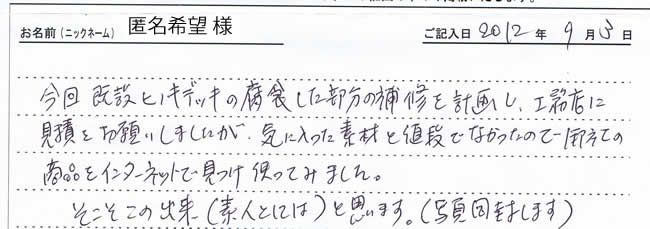 お名前(ニックネーム) 匿名希望 様 ご記入日 2012 年 9 月 3 日
今回 既設ヒノキデッキの腐食した部分の補修を計画し、工務店に
見積をお願いしましたが、気に入った素材と値段でなかったので御社の
商品をインターネットで見つけ使ってみました。
そこそこの出来(素人としては)と思います。(写真同封します)